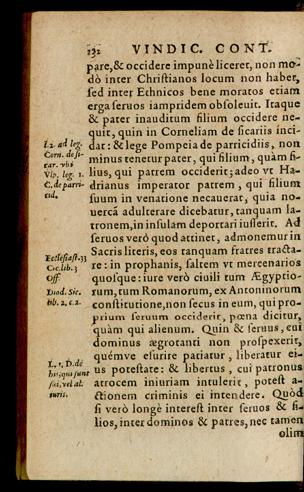 232 VINDIC. CONT.
pare, & occidere impunè liceret, non mo-
dò inter Christianos locum non haber,
sed inter Ethnicos bene moratos etiam
erga seruos iampridem obsoleuit. Itaque
& pater inauditum filium occidere ne-
quit, quin in Corneliam de sicariis inci-
dat: & lege Pompeia de parricidiis, non
minus tenetur pater, qui filium, quàm fi-
lius, qui patrem occiderit; adeo vt Ha-
drianus imperator patrem, qui filium
suum in venatione necauerat, quia no-
uercā adulterare dicebatur, tanquam la-
tronem, in insulam deportari iusserit. Ad
seruos verò quod attinet, admonemur in
Sacris literis, eos tanquam fratres tracta-
re: in prophanis, saltem vt mercenarios
quosque: iure verò ciuili tum Ægyptio-
rum, tum Romanorum, ex Antoninorum
constitutione, non secus in eum, qui pro-
prium seruum occiderit, pœna dicitur,
quàm qui alienum. Quin & seruus, cui
dominus ægrotanti non prospexerit,
quémve esurire patiatur, liberatur ei-
us potestate: & libertus, cui patronus
atrocem iniuriam intulerit, potest a-
ctionem criminis ei intendere. Quòd
si verò longè interest inter seruos & fi-
lios, inter dominos & patres, nec tamen
olim
l. 2. ad leg.
Corn. de si-
car. vbi
Vlp. leg. 1.
C. de parri-
cid.
Ecclesiast. 33
Cic. lib. 3
Off
Diod. Sic.
lib. 2. c. 2.
L. 1. D. de
his, qui sunt
sui, vel al.
iuris.